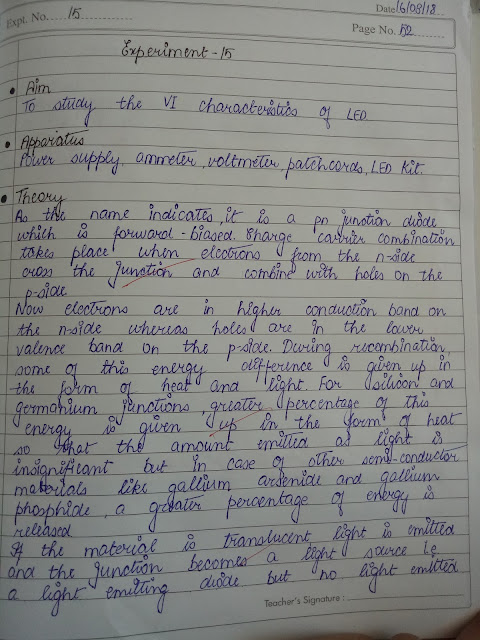 Expt. No. 15
Date 16/08/18
Page No. 52
Experiment - 15
Aim
To study the VI characteristics of LED
Apparatus
Power supply, ammeter, voltmeter, patchcords, LED Kit.
Theory
As the name indicates, it is a pn junction diode
which is forward-biased. Charge carrier combination
takes place when electrons from the n-side
cross the junction and combine with holes on the
p-side
Now electrons are in higher conduction band on
the n-side whereas holes are in the lower
valence band on the p-side. During recombination,
some of this energy difference is given up in
the form of heat and light. For silicon and
germanium junctions, greater percentage of this
energy is given up in the form of heat
so that the amount emitted as light is
insignificant but in case of other semi-conductor
materials like gallium arsenide and gallium
phosphide, a greater percentage of energy is
released
If the material is translucent light is emitted
and the junction becomes a light source i.e
a light emitting diode but no light emitted
Teacher's Signature :